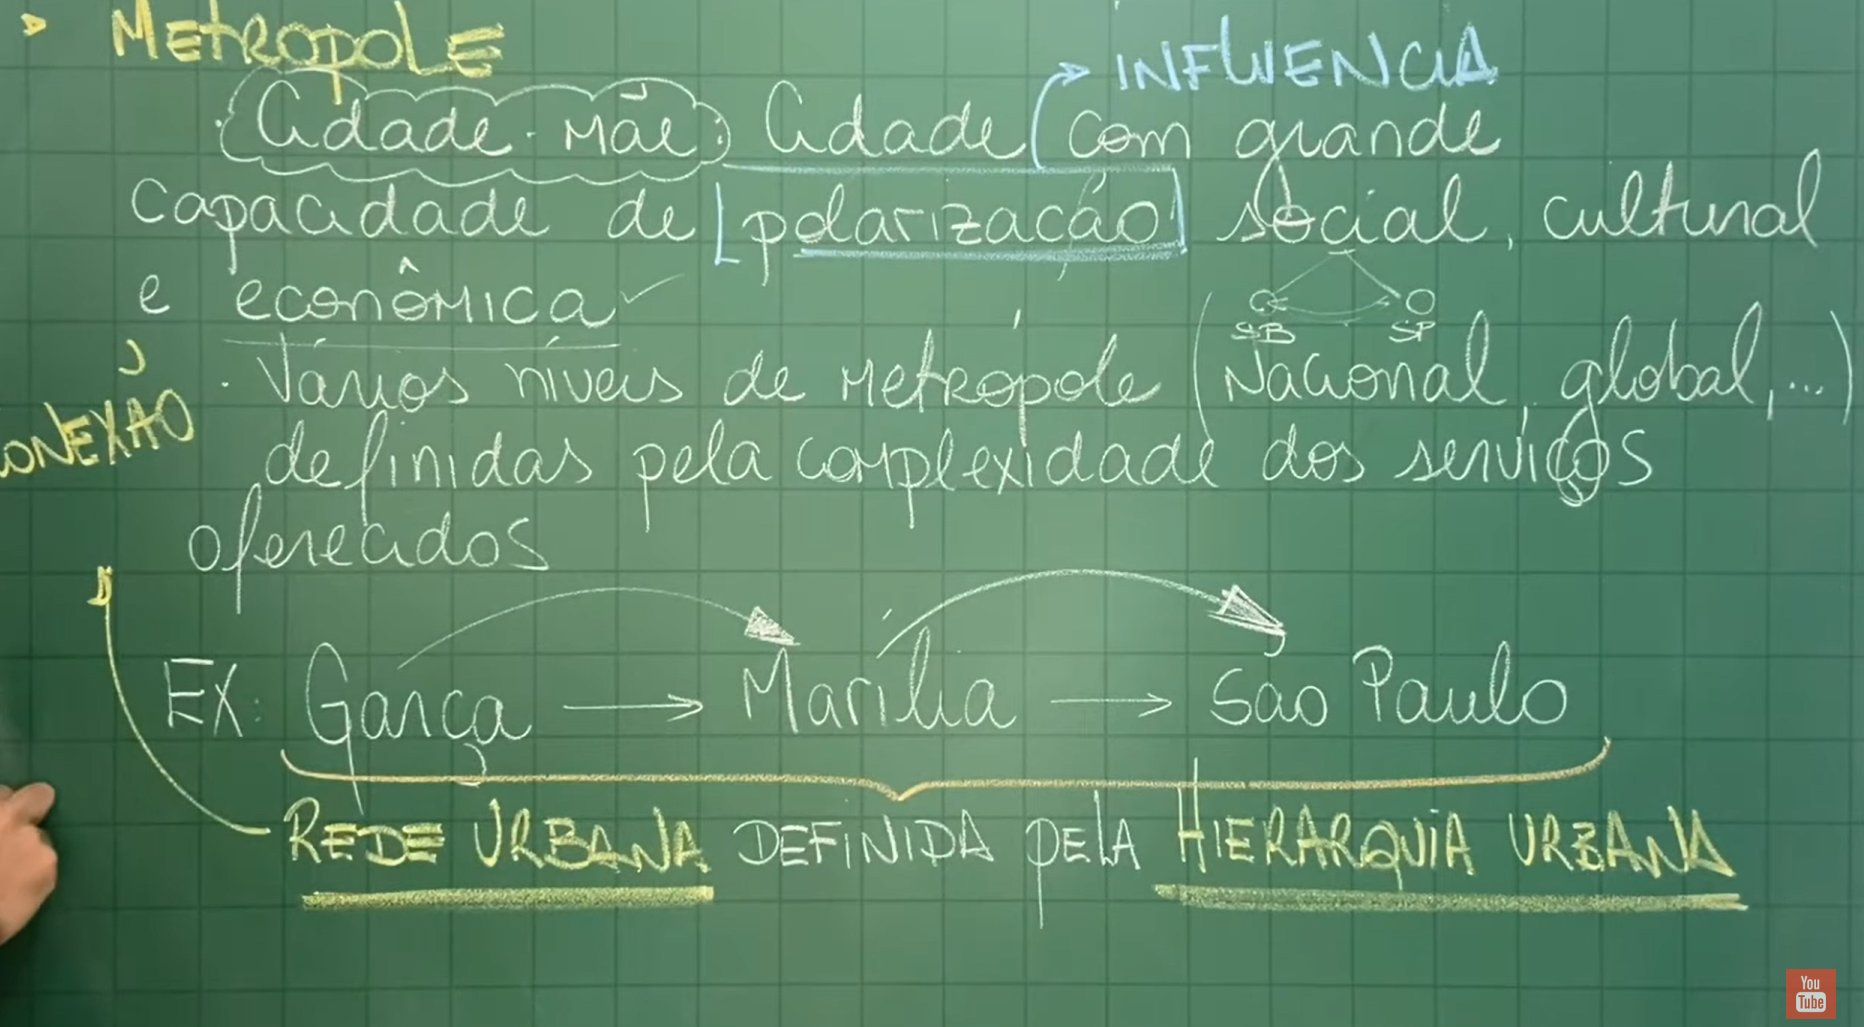 METROPOLE
INFLUENCIA
Cidade-mãe: Cidade com grande
capacidade de polarização social, cultural
e econômica
SB SP
Vários níveis de metrópole (Nacional, global, ...)
CONEXÃO
definidas pela complexidade dos serviços
oferecidos
EX: Garça → Marília → São Paulo
REDE URBANA DEFINIDA PELA HIERARQUIA URBANA
You
Tube